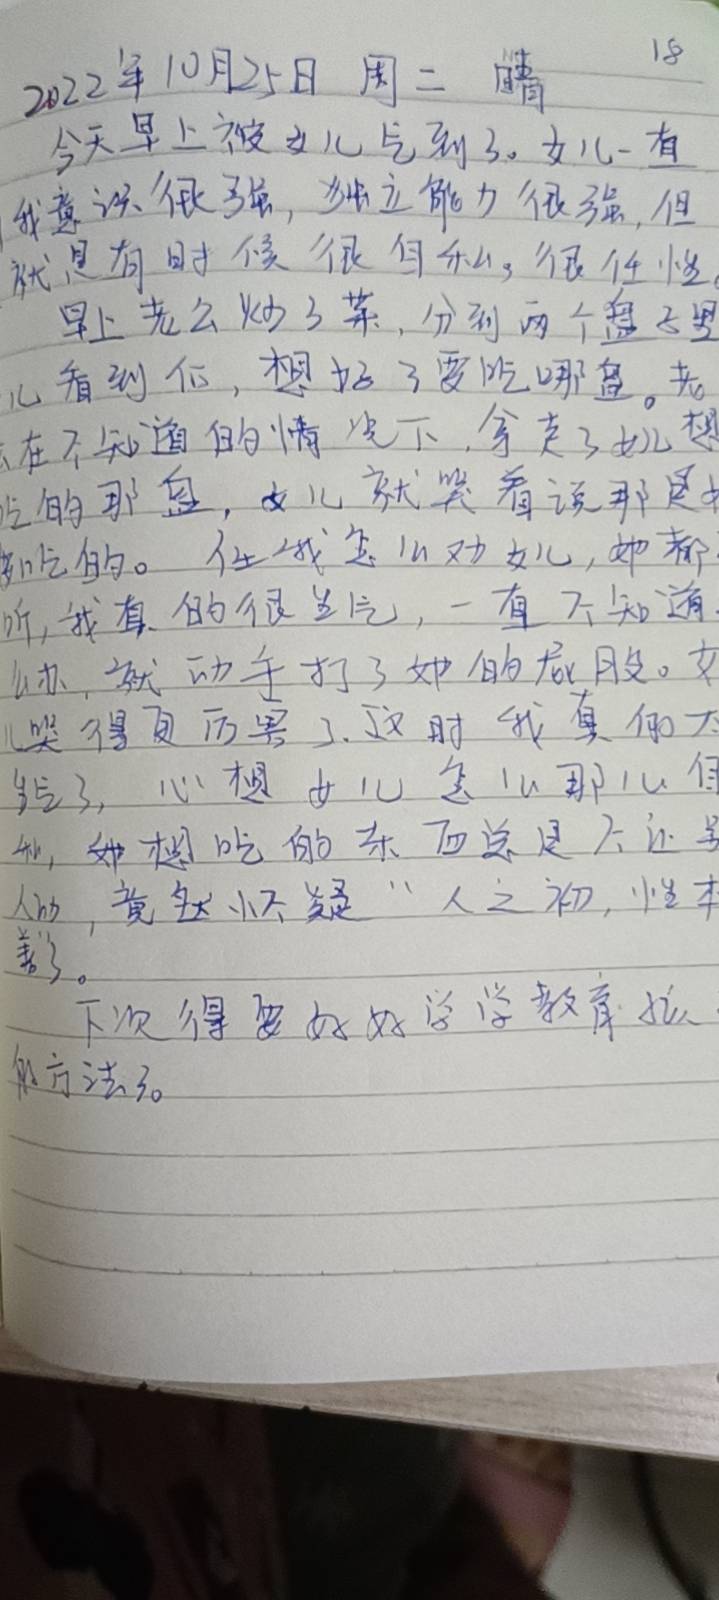 18
2022年10月25日 周二 晴
今天早上被女儿气到了。女儿一直
我意识很强，独立能力很强，但
就是有时候很自私，很任性。
早上老公炒了菜，分到两个盘子里
儿看到后，想好了要吃哪盘。老
在不知道的情况下，拿走了女儿想
吃的那盘，女儿就哭着说那是
吃的。任我怎么劝女儿，她都
听，我真的很生气，一直不知道
么办，就动手打了她的屁股。女
儿哭得更厉害了。这时我真的太
生气了，心想女儿怎么那么自
私，她想吃的东西总是不让
人动，竟然怀疑“人之初，性本
善”了。
下次得要好好学学教育孩
的方法了。